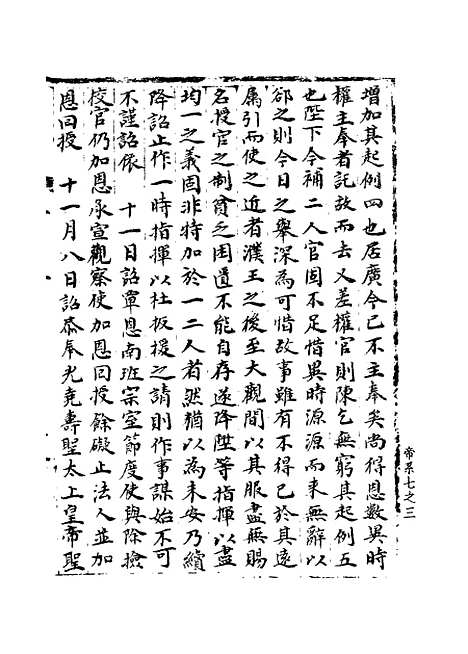 增加其起例四也居廣今已不主奉矣尚得恩數異時
權主奉者託故而去又差權官則陳乞無窮其起例五
也陛下今補二人官固不足惜異時源源而來無辭以
郤之則今日之舉深為可惜故事雖有不得已於其遠
屬引而使之近者濮王之後至大觀間以其服盡無賜
名授官之制貧乏困遺不能自存遂降陞等指揮以盡
均一之義固非特加於一二人者然猶以為未安乃續
降詔止作一時指揮以杜扳援之請則作事謀始不可
不謹詔依　十一日詔覃恩南班宗室節度使與除撿
校官仍加恩承宣觀察使加恩回授餘礙止法人並加
恩回授　十一月八日詔恭奉光堯壽聖太上皇帝聖
帝系七之三